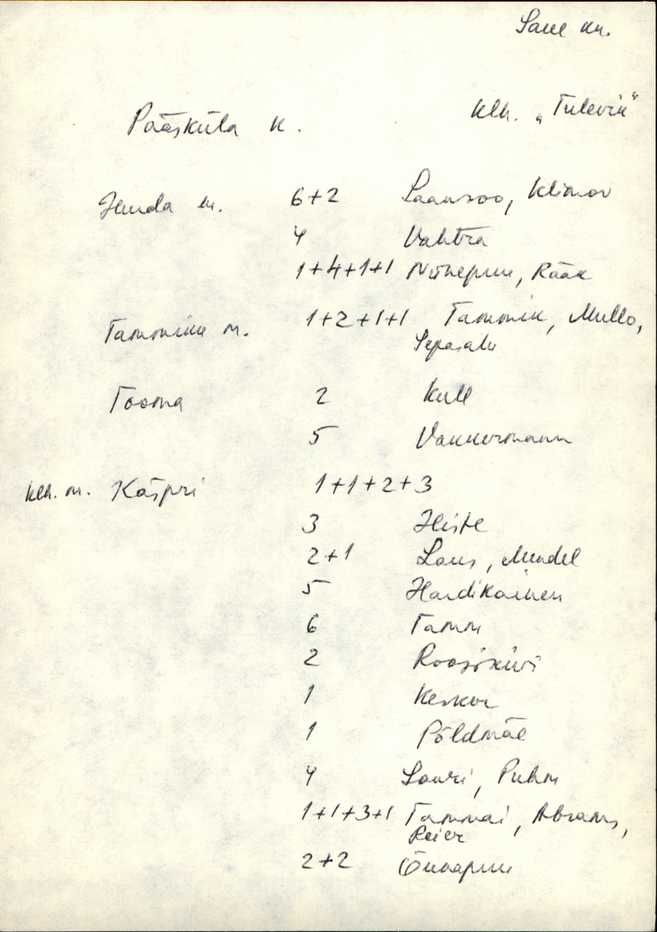 Saue kn.
Pääsküla k. klh. "Tulevik"
m. 6+2 Laansoo, Klimov
4 Vahtra
1+4+1+1 Rääk
Tammiku m. 1+2+1+1 Tammik, Mullo,
Sepasalu
Tooma 2 Kull
5 Vakkermann
klh. m. Kaspri 1+1+2+3
3
2+1 Laus, Mendel
5 Hardikainen
6 Tamm
2 Roosikivi
1
1 Põldmäe
4 Lauri, Puhm
1+1+3+1 Tammai, Abrams,
Reier
2+2 Õunapuu